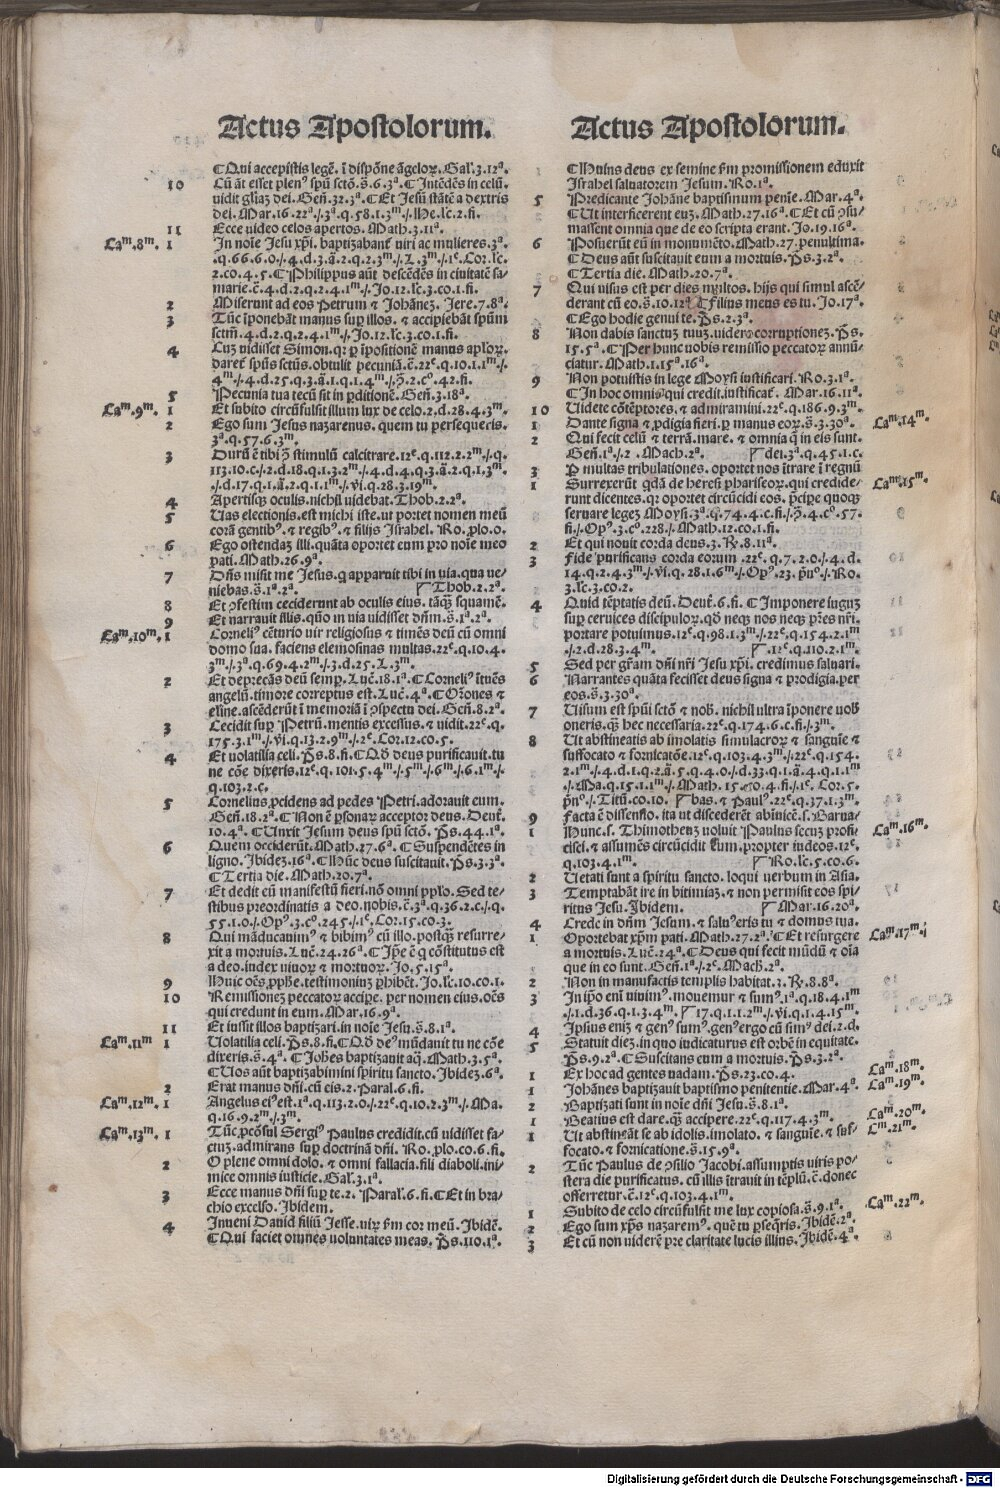 Actus Apostolorum.
¶ Qui accepistis legē. ī dispōne āgeloꝝ. Gal̄.3.12ª.
10 Cū āt esset plenꝰ spū sctō.s̄.6.3ª. ¶ Intēdēs in celū.
vidit gl̄iaꝫ dei. Gen̄.32.3ª. ¶ Et Jesū stātē a dextris
dei. Mar.16.22ª./.3ª.q.58.1.3ᵐ./.He.lc̄.2.fi.
11 Ecce video celos apertos. Math.3.11ª.
Caᵐ.8ᵐ. 1 In noīe Jesu xp̄i. baptizabant̄ viri ac mulieres.3ª.
.q.66.6.o./.4.d.3.ā.2.q.2.3ᵐ./.L.3ᵐ./.1ᵉ.Cor.lc̄.
2.co.4.5. ¶ Philippus aūt descēdēs in ciuitatē sa/
marie.c̄.4.d.2.q.2.4.1ᵐ./.Jo.12.lc̄.3.co.1.fi.
2 Miserunt ad eos Petrum ⁊ Johāneꝫ. Jere.7.8ª.
3 Tūc īponebāt manus suꝑ illos. ⁊ accipiebāt spūm
sctm̄.4.d.2.q.2.4.1ᵐ./.Jo.12.lc̄.3.co.1.fi.
4 Cuꝫ vidisset Simon.qꝛ ꝑ īpositionē manus ap̄loꝝ.
daret̄ spūs sctūs.obtulit pecuniā.c̄.22ᵉ.q.10.1.1ᵐ./.
4ᵐ./.4.d.25.q.3.ā.1.q.1.4ᵐ./.p̄.2.cº.42.fi.
5 Pecunia tua tecū sit in ꝑditionē. Gen̄.3.18ª.
Caᵐ.9ᵐ. 1 Et subito circūfulsit illum lux de celo.2.d.28.4.3ᵐ.
2 Ego sum Jesus nazarenus. quem tu persequeris.
3ª.q.57.6.3ᵐ.
3 Durū ē tibi ꝯ̄ stimulū calcitrare.12ᵉ.q.112.2.2ᵐ./.q.
113.10.c./.2.d.18.q.1.3.2ᵐ./.4.d.4.q.3.ā.2.q.1.3ᵐ.
./.d.17.q.1.ā.2.q.1.1ᵐ./.vi.q.28.3.19ᵐ.
4 Apertisqꝫ oculis.nichil videbat. Thob.2.2ª.
5 Uas electionis.est michi iste.ut portet nomen meū
corā gentibꝰ.⁊ regibꝰ.⁊ filijs Israhel. Ro.ꝓlo.o.
6 Ego ostendaꝫ illi.quāta oportet eum pro noīe meo
pati. Math.26.9ª.
7 Dn̄s misit me Jesus.q apparuit tibi in via.qua ve/
niebas.s̄.1ª.2ª. Thob.2.2ª.
8 Et ꝯfestim ceciderunt ab oculis eius.tāqꝫ squamē.
9 Et narrauit illis.quō in via vidisset dn̄m.s̄.1ª.2ª.
Caᵐ.10ᵐ. 1 Corneliꝰ cēturio vir religiosus ⁊ timēs deū cū omni
domo sua.faciens elemosinas multas.22ᵉ.q.10.4.
3ᵐ./.3ª.q.69.4.2ᵐ./.3.d.25.L.3ᵐ.
2 Et deprecās deū semꝑ. Luc̄.18.1ª. ¶ Corneliꝰ ītuēs
angelū.timore correptus est. Luc̄.4ª. ¶ Or̄ones ⁊
elīne.ascēderūt ī memoriā ī ꝯspectu dei. Gen̄.8.2ª.
3 Cecidit suꝑ Petrū.mentis excessus.⁊ vidit.22ᵉ.q.
175.3.1ᵐ./.vi.q.13.2.9ᵐ./.2ᵉ.Cor.12.co.5.
4 Et volatilia celi. Ps̄.8.fi. ¶ Qd̄ deus purificauit.tu
ne cōe dixeris.12ᵉ.q.101.5.4ᵐ./.5ᵐ./.6ᵐ./.6.1ᵐ./.
q.103.2.c.
5 Cornelius.ꝓcidens ad pedes Petri.adorauit eum.
Gen̄.18.2ª. ¶ Non ē ꝑsonaꝝ acceptor deus. Deut̄.
10.4ª. ¶ Unxit Jesum deus spū sctō. Ps̄.44.1ª.
6 Quem occiderūt. Math.27.6ª. ¶ Suspendētes in
ligno. Ibideꝫ.16ª. ¶ Hūc deus suscitauit. Ps̄.3.3ª.
¶ Tertia die. Math.20.7ª.
7 Et dedit eū manifestū fieri.nō omni pplo. Sed te/
stibus preordinatis a deo.nobis.c̄.3ª.q.36.2.c./.q.
55.1.o./.Opꝰ.3.cº.245./.1ᵉ.Cor.15.co.3.
8 Qui māducauimꝰ ⁊ bibimꝰ cū illo.postqꝫ resurre/
xit a mortuis. Luc̄.24.26ª. ¶ Ip̄e ē q cōstitutus est
a deo.iudex viuoꝝ ⁊ mortuoꝝ. Jo.5.15ª.
9 Huic oēs ꝓphe.testimoniuꝫ ꝑhibēt. Jo.lc̄.10.co.1.
10 Remissioneꝫ peccatoꝝ accipe.per nomen eius.oēs
qui credunt in eum. Mar.16.9ª.
11 Et iussit illos baptizari.in noīe Jesu.s̄.8.1ª.
Caᵐ.11ᵐ 1 Uolatilia celi. Ps̄.8.fi. ¶ Qd̄ deꝰ mūdauit tu ne cōe
dixeris.s̄.4ª. ¶ Joh̄es baptizauit aq̄. Math.3.5ª.
¶ Uos aūt baptizabimini spiritu sancto. Ibideꝫ.6ª.
2 Erat manus dn̄i.cū eis.2.Paral.6.fi.
Caᵐ.12ᵐ. 1 Angelus eiꝰ est.1ª.q.113.2.o./.22ᵉ.q.10.2.3ᵐ./.Ma.
q.16.9.2ᵐ./.3ᵐ.
Caᵐ.13ᵐ. 1 Tūc ꝓcōsul Sergiꝰ Paulus credidit.cū vidisset fa/
ctuꝫ.admirans suꝑ doctrinā dn̄i. Ro.ꝓlo.co.6.fi.
2 O plene omni dolo.⁊ omni fallacia.fili diaboli.ini/
mice omnis iusticie. Gal̄.3.1ª.
3 Ecce manus dn̄i suꝑ te.2.Paral̄.6.fi. ¶ Et in bra/
chio excelso. Ibidem.
4 Inueni Dauid filiū Jesse.uiꝝ ẜm cor meū. Ibidē.
¶ Qui faciet omnes voluntates meas. Ps̄.110.1ª.
Actus Apostolorum.
¶ Huius deus ex semine ẜm promissionem eduxit
Israhel saluatorem Jesum. Ro.1ª.
5 Predicante Johāne baptismum penīe. Mar.4ª.
¶ Ut interficerent euꝫ. Math.27.16ª. ¶ Et cū ꝯsu/
massent omnia que de eo scripta erant. Jo.19.16ª.
6 Posuerūt eū in monumēto. Math.27.penultima.
¶ Deus aūt suscitauit eum a mortuis. Ps̄.3.2ª.
¶ Tertia die. Math.20.7ª.
7 Qui visus est per dies multos.hijs qui simul ascē/
derant cū eo.s̄.10.12ª ¶ Filius meus es tu. Jo.17ª.
¶ Ego hodie genui te. Ps̄.2.3ª.
8 Non dabis sanctuꝫ tuuꝫ.videre corruptioneꝫ. Ps̄.
15.5ª. ¶ Per hunc nobis remissio peccatoꝝ annū/
ciatur. Math.1.15ª.16ª.
9 Non potuistis in lege Moysi iustificari. Ro.3.1ª.
¶ In hoc omnis qui credit.iustificat̄. Mar.16.11ª.
10 Uidete cōtēptores.⁊ admiramini.22ᵉ.q.186.9.3ᵐ.
Caᵐ.14ᵐ. 1 Dante signa ⁊ ꝓdigia fieri.ꝑ manus eoꝝ.s̄.3.30ª.
2 Qui fecit celū ⁊ terrā.mare.⁊ omnia q̄ in eis sunt.
Gen̄.1ª./.2.Mach.2ª. dei.3ª.q.45.1.c.
3 Ꝑ multas tribulationes.oportet nos ītrare ī regnū
Caᵐ.15ᵐ. 1 Surrexerūt qdā de heresi phariseoꝝ.qui credide/
runt dicentes.qꝛ oportet circūcidi eos.p̄cipe quoqꝫ
seruare legeꝫ Moysi.3ª.q.74.4.c.fi./.p̄.4.cº.57.
fi./.Opꝰ.3.cº.228./.Math.12.co.1.fi.
2 Et qui nouit corda deus.3.R̄.8.11ª.
3 Fide purificans corda eorum.22ᵉ.q.7.2.o./.4.d.
14.q.2.4.3ᵐ./.vi.q.28.1.6ᵐ./.Opꝰ.23.p̄uº./.Ro.
3.lc̄.3.co.2.
4 Quid tēptatis deū. Deut̄.6.fi. ¶ Imponere iuguꝫ
suꝑ ceruices discipuloꝝ.qd̄ neqꝫ nos neqꝫ pr̄es nr̄i.
portare potuimus.12ᵉ.q.98.1.3ᵐ./.22ᵉ.q.154.2.1ᵐ
./.2.d.28.3.4ᵐ. .12ᵉ.q.110.2.1ᵐ.
5 Sed per gr̄am dn̄i nr̄i Jesu xp̄i.credimus saluari.
6 Narrantes quāta fecisset deus signa ⁊ prodigia.per
eos.s̄.3.30ª.
7 Uisum est spūi sctō ⁊ nob̄.nichil ultra īponere vob̄
oneris.qꝫ hec necessaria.22ᵉ.q.174.6.c.fi./.3ᵐ.
8 Ut abstineatis ab imolatis simulacroꝝ ⁊ sanguīe ⁊
suffocato ⁊ fornicatōe.12ᵉ.q.103.4.3ᵐ./.22ᵉ.q.154.
2.1ᵐ./.4.d.1.q.2.ā.5.q.4.o./.d.33.q.1.ā.4.q.1.1ᵐ
./.Ma.q.15.1.1ᵐ./.Math.15.co.4.fi./.1ᵉ.Cor.5.
p̄nº./.Titū.co.10. bas.⁊ Paulꝰ.22ᵉ.q.37.1.3ᵐ.
9 Facta ē dissensio.ita ut discederēt abīuicē.s.Barna/
Caᵐ.16ᵐ. 1 Hunc.s.Thimotheuꝫ voluit Paulus secuꝫ profi/
cisci.⁊ assumēs circūcidit eum.propter iudeos.12ᵉ.
q.103.4.1ᵐ. Ro.lc̄.5.co.6.
2 Uetati sunt a spiritu sancto.loqui verbum in Asia.
3 Temptabāt ire in bitiniaꝫ.⁊ non permisit eos spi/
ritus Jesu. Ibidem. Mar.16.20ª.
4 Crede in dn̄m Jesum.⁊ saluꝰ eris tu ⁊ domus tua.
Caᵐ.17ᵐ. 1 Oportebat xp̄m pati. Math.27.2ª. ¶ Et resurgere
a mortuis. Luc̄.24ª. ¶ Deus qui fecit mūdū ⁊ oīa
que in eo sunt. Gen̄.1ª./.2ᵉ.Mach̄.2ª.
2 Non in manufactis templis habitat.3.R̄.8.8ª.
3 In ip̄o enī viuimꝰ.mouemur ⁊ sumꝰ.1ª.q.18.4.1ᵐ
./.1.d.36.q.1.3.4ᵐ. 17.q.1.1.2ᵐ./.vi.q.1.4.15ᵐ
4 Ipsius eniꝫ ⁊ genꝰ sumꝰ.genꝰ ergo cū simꝰ dei.2.d.
5 Statuit dieꝫ.in quo iudicaturus est orbē in equitate.
Ps̄.9.2ª. ¶ Suscitans eum a mortuis. Ps̄.3.2ª.
Caᵐ.18ᵐ. 1 Ex hoc ad gentes vadam. Ps̄.23.co.4.
Caᵐ.19ᵐ. 1 Johānes baptizauit baptismo penitentie. Mar.4ª.
2 Baptizati sunt in noīe dn̄i Jesu.s̄.8.1ª.
Caᵐ.20ᵐ. 1 Beatius est dare.qꝫ accipere.22ᵉ.q.117.4.3ᵐ.
Cᵐ.21ᵐ. 1 Ut abstineāt se ab idolis.imolato.⁊ sanguīe.⁊ suf/
focato.⁊ fornicatione.s̄.15.9ª.
2 Tūc Paulus de ꝯsilio Jacobi.assumptis viris po/
stera die purificatus.cū illis ītrauit in tēplū.c̄.donec
offerretur.c̄.12ᵉ.q.103.4.1ᵐ.
Caᵐ.22ᵐ. 1 Subito de celo circūfulsit me lux copiosa.s̄.9.1ª.
2 Ego sum xp̄s nazarenꝰ.quē tu ꝑseqris. Ibidē.2ª.
3 Et cū non viderē pre claritate lucis illius. Ibidē.4ª.
Digitalisierung gefördert durch die Deutsche Forschungsgemeinschaft - DFG